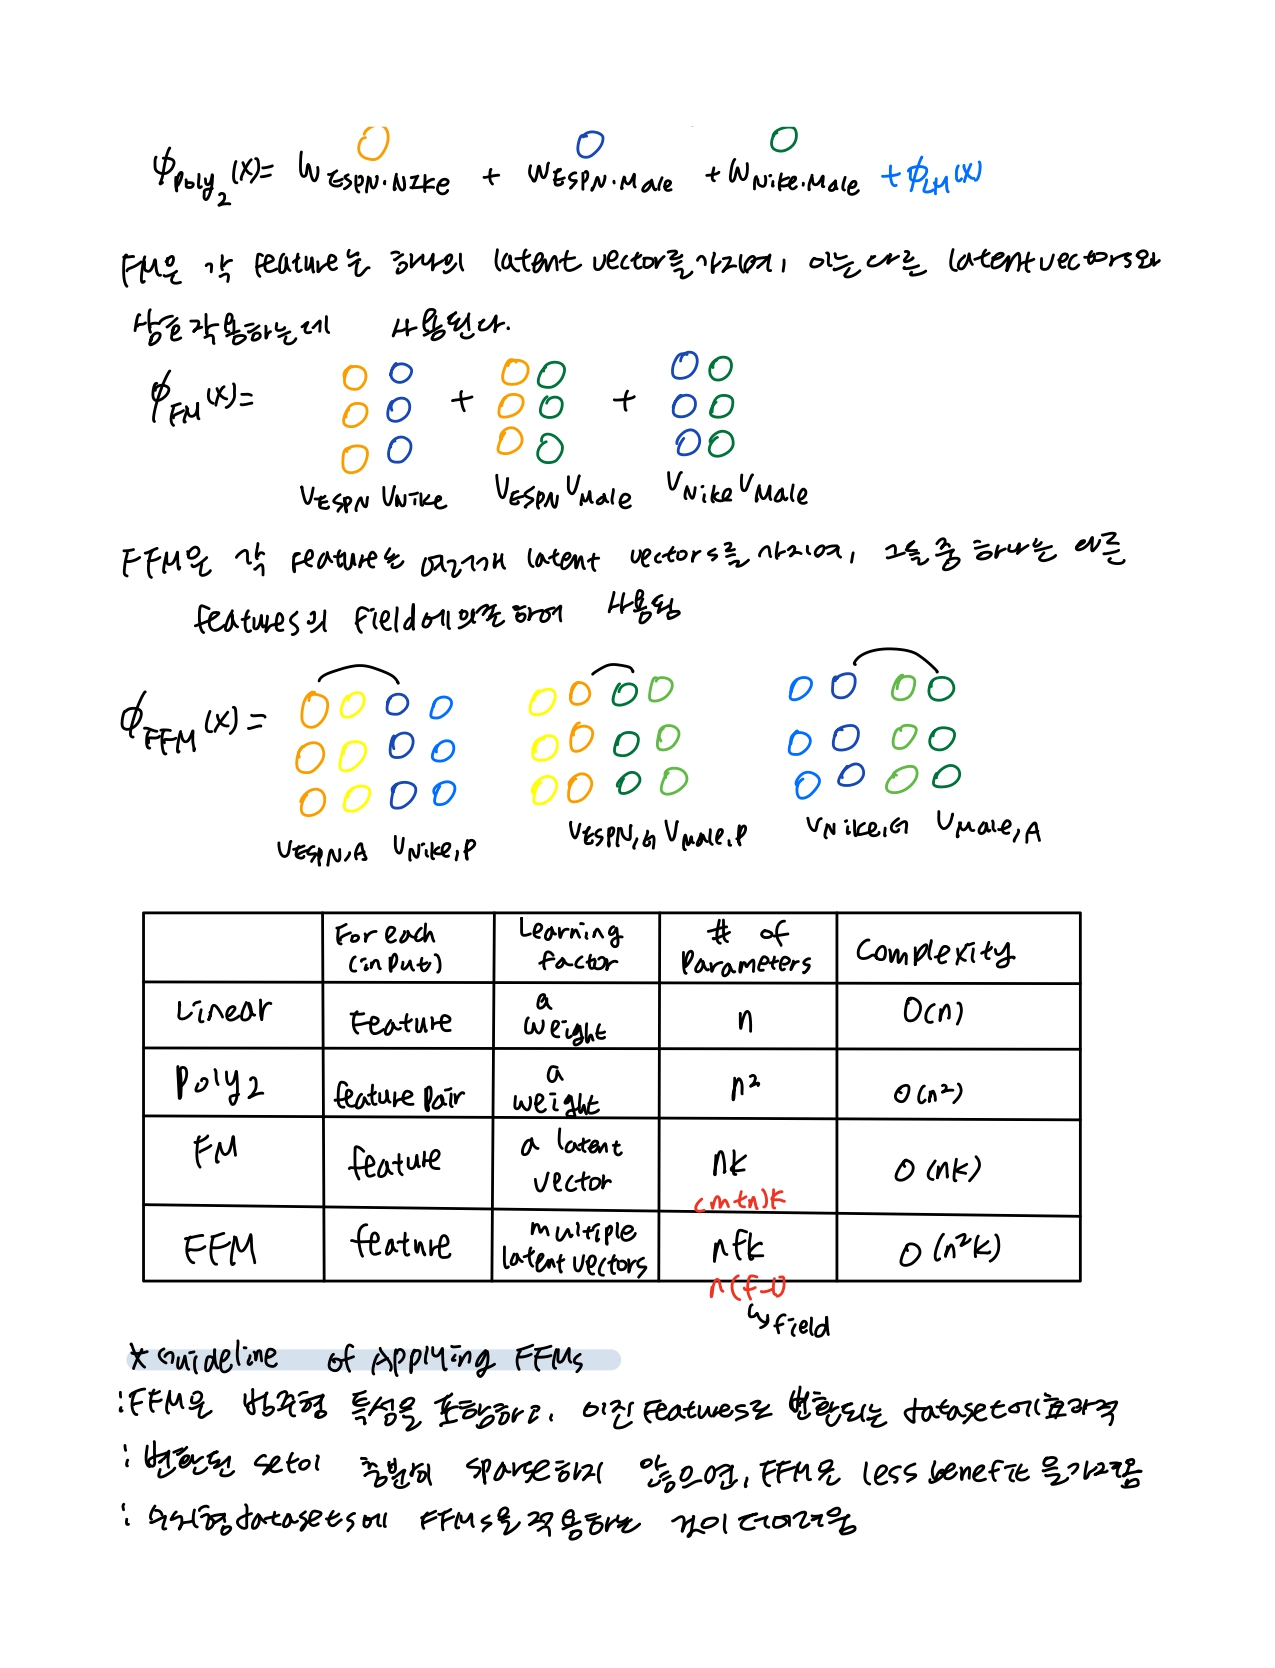 ϕPoly2(x)= WESPN·NIKe + WESPN·Male + WNike·Male + ϕLM(x)
FM은 각 feature는 하나의 latent vector를 가지며, 이는 다른 latent vectors와
상호작용하는데 사용된다.
ϕFM(x)= + +
VESPN VNike VESPN VMale VNike VMale
FFM은 각 feature는 여러개 latent vectors를 가지며, 그들 중 하나는 다른
features의 Field에 의존하여 사용됨
ϕFFM(x)=
VESPN,A VNike,P VESPN,G VMale,P VNike,G VMale,A
For each (input) Learning factor # of Parameters Complexity
Linear Feature a weight n O(n)
Poly2 feature pair a weight n² O(n²)
FM feature a latent vector nk (m+n)k O(nk)
FFM feature multiple latent vectors nfk n(f-1) O(n²k)
↳field
* Guideline of Applying FFMs
: FFM은 범주형 특성을 포함하고, 이진 features로 변환되는 dataset에 효과적
: 변환된 set이 충분히 sparse하지 않으면, FFM은 less benefit을 가져옴
: 수치형 datasets에 FFMs을 적용하는 것이 더 어려움